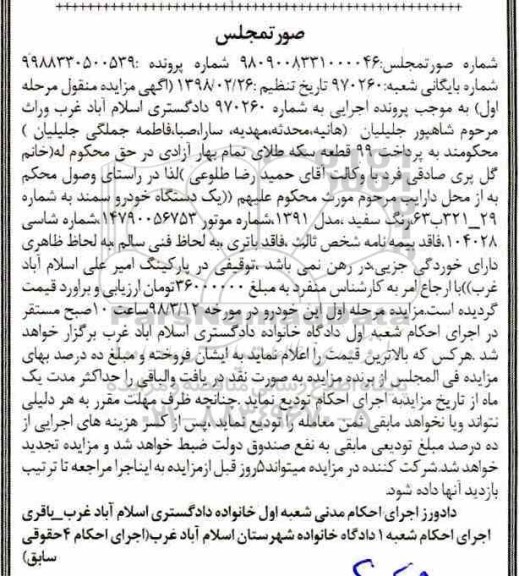 صورتمجلس
شماره صورتمجلس:۹۸۰۹۰۰۸۳۳۱۰۰۰۰۴۶ شماره پرونده :۹۹۸۸۳۳۰۵۰۰۵۳۹
شماره بایگانی شعبه:۹۷۰۲۶۰ تاریخ تنظیم :۱۳۹۸/۰۲/۲۶ (اگهی مزایده منقول مرحله
اول) به موجب پرونده اجرایی به شماره ۹۷۰۲۶۰ دادگستری اسلام آباد غرب وراث
مرحوم شاهپور جلیلیان (هانیه،محدثه،مهدیه، سارا،صبا،فاطمه جملگی جلیلیان )
محکومند به پرداخت ۹۹ قطعه سکه طلای تمام بهار آزادی در حق محکوم له(خانم
گل پری صادقی فرد با وکالت آقای حمید رضا طلوعی )لذا در راستای وصول محکم
به از محل دارایی مرحوم مورث محکوم علیهم ((یک دستگاه خودرو سمند به شماره
۲۹_۳۲۱ب۶۳،رنگ سفید ،مدل ۱۳۹۱،شماره موتور ۱۴۷۹۰۰۵۶۷۵۳،شماره شاسی
۱۰۴۰۲۸،فاقد بیمه نامه شخص ثالث ،فاقد باتری ،به لحاظ فنی سالم ،به لحاظ ظاهری
دارای خوردگی جزیی،در رهن نمی باشد ،توقیفی در پارکینگ امیر علی اسلام آباد
غرب))با ارجاع امر به کارشناس منفرد به مبلغ ۳۶۰۰۰۰۰۰تومان ارزیابی و براورد قیمت
گردیده است.مزایده مرحله اول این خودرو در مورخه ۹۸/۳/۱۲ساعت ۱۰صبح مستقر
در اجرای احکام شعبه اول دادگاه خانواده دادگستری اسلام آباد غرب برگزار خواهد
شد .هرکس که بالاترین قیمت را اعلام نماید به ایشان فروخته و مبلغ ده درصد بهای
مزایده فی المجلس از برنده مزایده به صورت نقد در یافت والباقی را حداکثر مدت یک
ماه از تاریخ مزایدبه اجرای احکام تودیع نماید .چنانچه ظرف مهلت مقرر به هر دلیلی
نتواند ویا نخواهد مابقی ثمن معامله را تودیع نماید،پس از کسر هزینه های اجرایی از
ده درصد مبلغ تودیعی مابقی به نفع صندوق دولت ضبط خواهد شد و مزایده تجدید
خواهد شد.شرکت کننده در مزایده میتواند۵روز قبل ازمزایده به اینجاا مراجعه تا ترتیب
بازدید آنها داده شود.
دادورز اجرای احکام مدنی شعبه اول خانواده دادگستری اسلام آباد غرب_باقری
اجرای احکام شعبه ۱ دادگاه خانواده شهرستان اسلام آباد غرب(اجرای احکام ۴حقوقی
سابق)